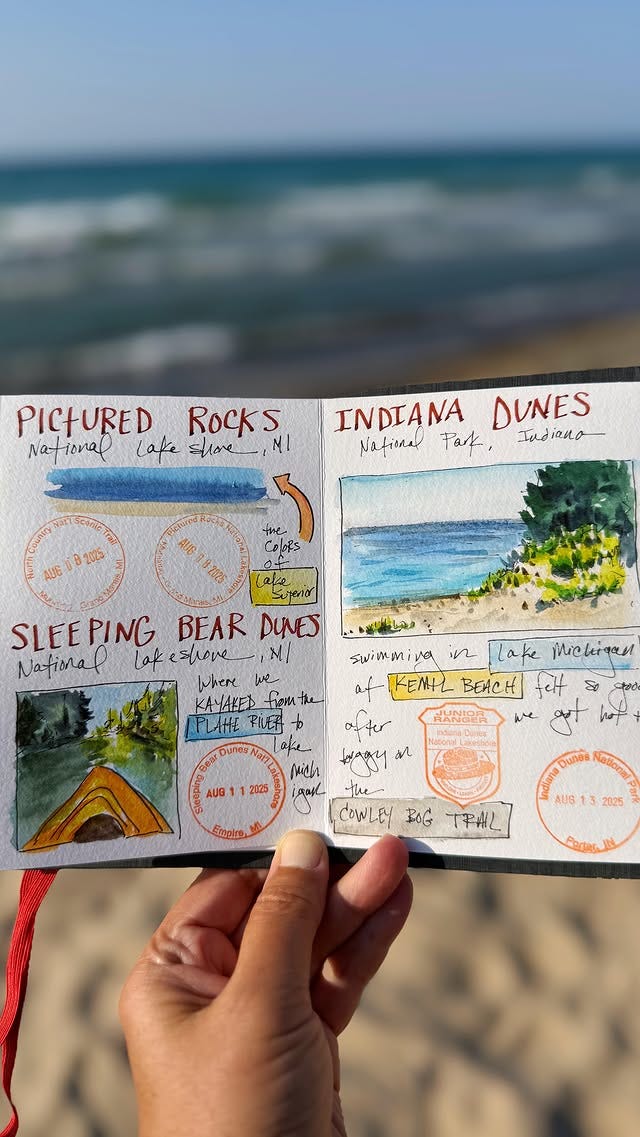 PICTURED ROCKS
National Lakeshore, MI
the
Colors
of
Lake
Superior
North Country Nat'l Scenic Trail
AUG 0 8 2025
Grand Marais, MI
Pictured Rocks National Lakeshore
AUG 0 8 2025
Grand Marais, MI
SLEEPING BEAR DUNES
National Lakeshore, MI
where we
KAYAKED from the
PLATTE RIVER to
Lake
Mich
igan
Sleeping Bear Dunes Nat'l Lakeshore
AUG 1 1 2025
Empire, MI
INDIANA DUNES
National Park, Indiana
swimming in Lake Michigan
at KEMIL BEACH felt so good
after we got hot +
buggy on
the
COWLEY BOG TRAIL
JUNIOR
RANGER
Indiana Dunes
National Lakeshore
Indiana Dunes National Park
AUG 1 3 2025
Porter, IN